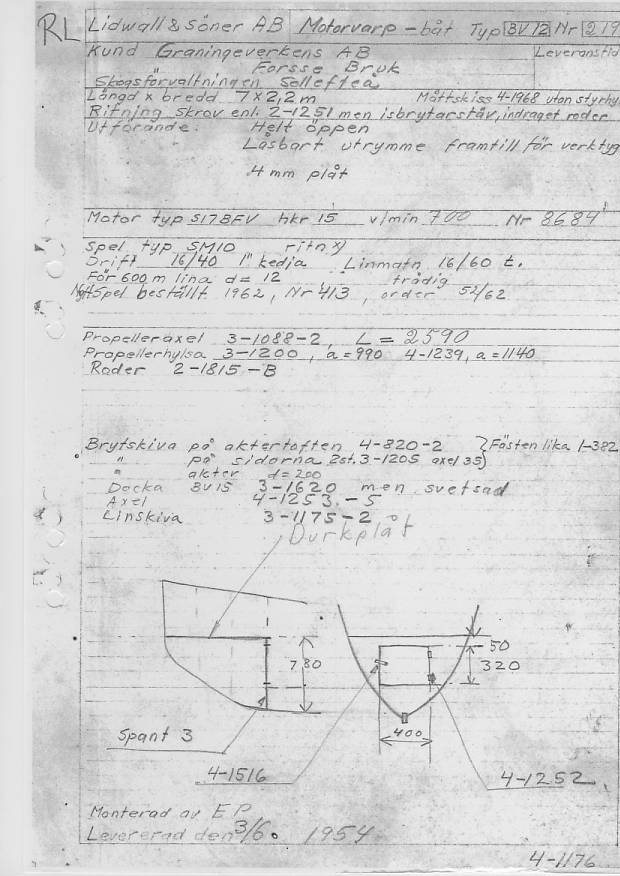 RL
Lidwall & Söner AB Motorvarp-båt Typ BV12 Nr 219
Kund Graningeverkens AB Leveranstid
Forsse Bruk
Skogsförvaltningen Sollefteå
Längd x bredd 7x2,2 m Måttskiss 4-1968 utan styrhy
Ritning skrov enl. 2-1251 men isbrytarstäv, indraget roder
Utförande. Helt öppen
Låsbart utrymme framtill för verktyg
4 mm plåt
Motor typ S178EV hkr 15 v/min 700 Nr 8684
Spel typ SM10 ritn.x)
Drift 16/40 1" kedja Linmatn 16/60 t.
För 600 m lina d = 12 trådig
Nytt Spel beställt 1962, Nr 413, order 52/62
Propelleraxel 3-1088-2, L = 2590
Propellerhylsa 3-1200, a=990 4-1239, a=1140
Roder 2-1815-B
Brytskiva på aktertoften 4-820-2 } Fästen lika 1-382
" på sidorna 2st. 3-1205 axel 35
" akter d=200
Docka BV15 3-1620 men svetsad
Axel 4-1253.-5
Linskiva 3-1175-2
Durkplåt
50
780
320
Spant 3
400
4-1516
4-1252
Monterad av EP
Levererad den 3/6. 1954
4-1176